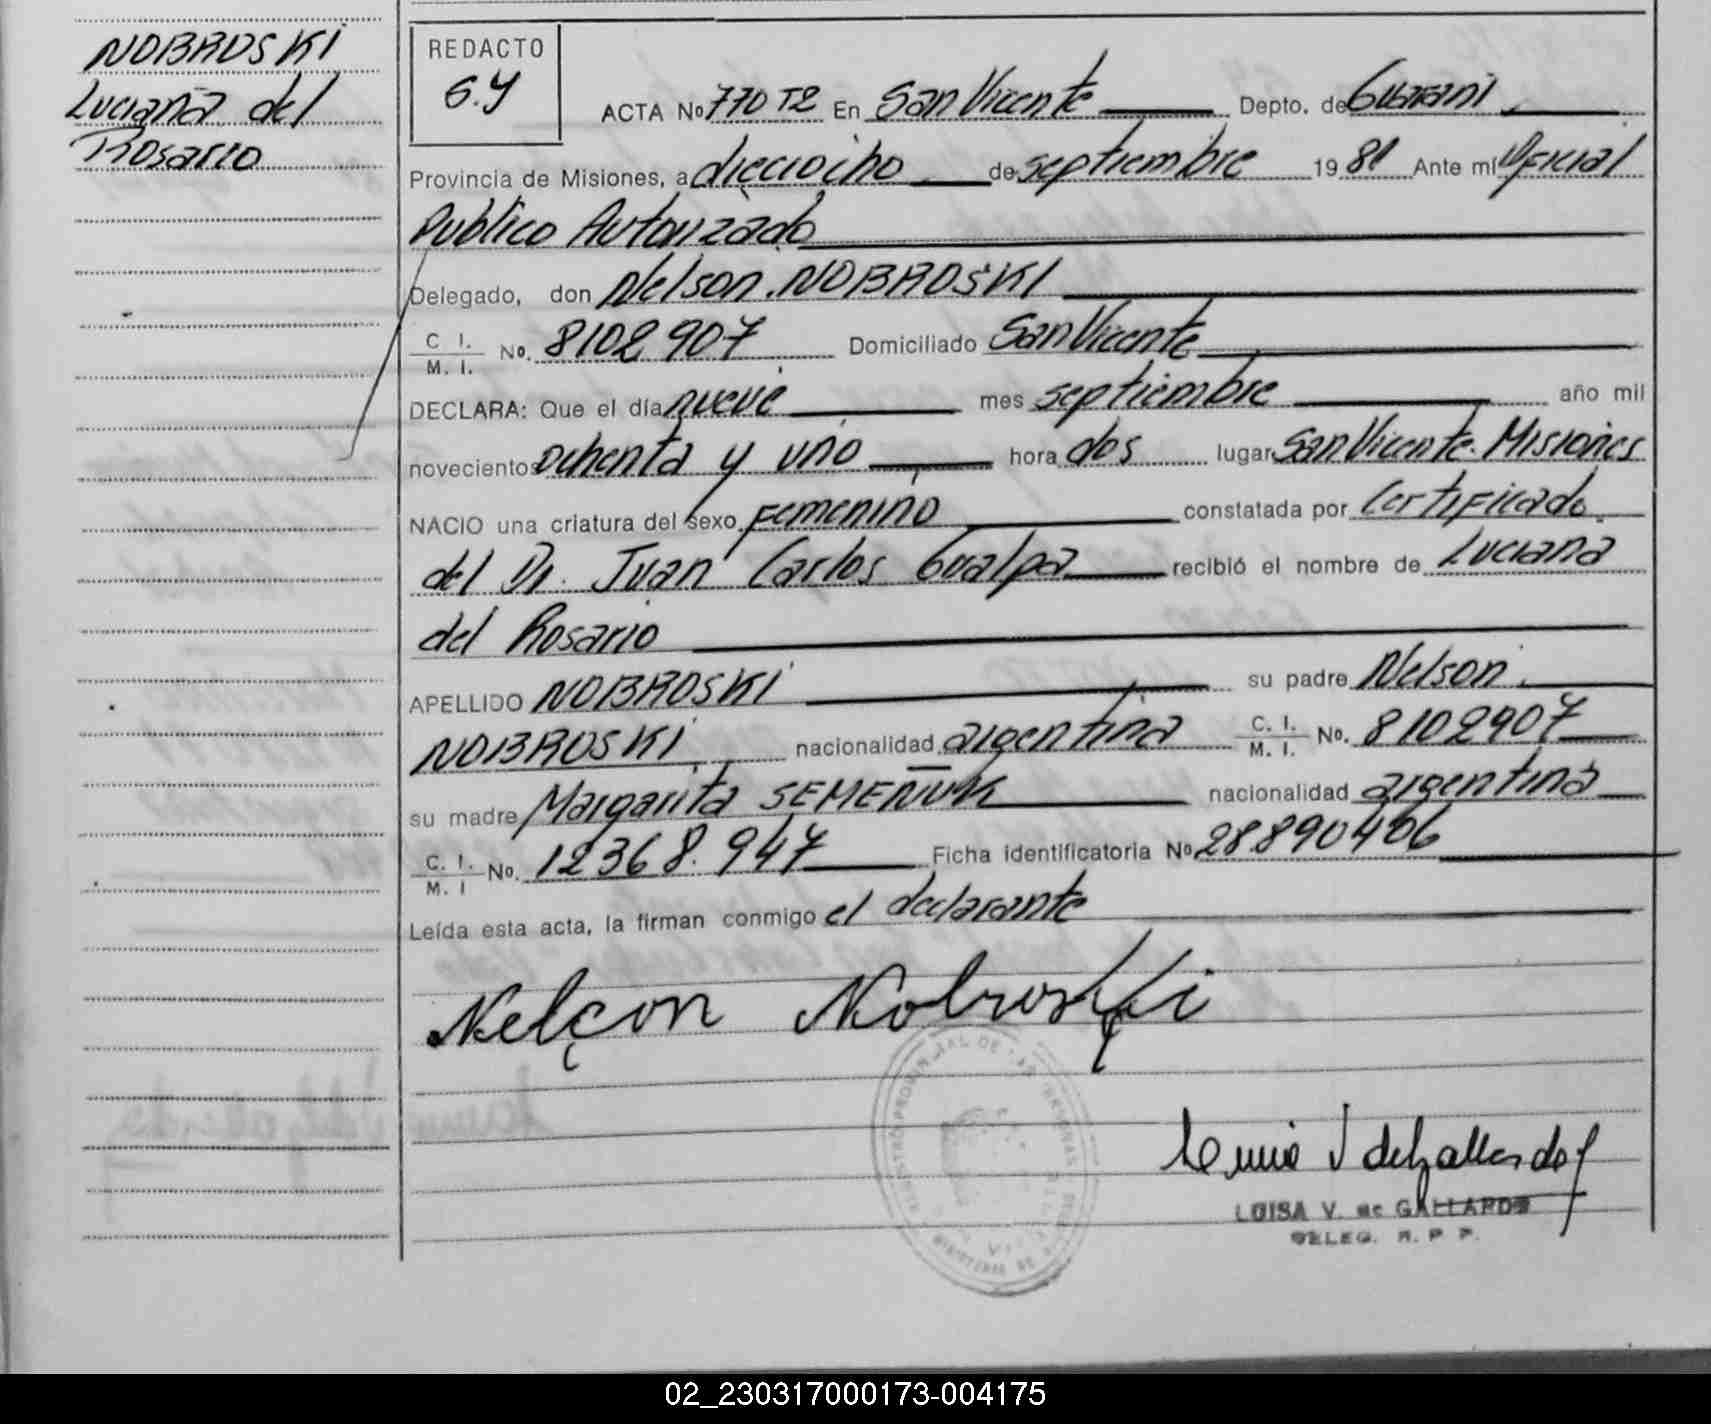 NOBROSKI
Luciana del
Rosario
REDACTO
G.Y
ACTA No 770 T2 En San Vicente Depto. de Guarani
Provincia de Misiones, a dieciocho de septiembre 1981 Ante mí Oficial
Publico Autorizado
Delegado, don Nelson NOBROSKI
C. I. / M. I. No. 8102907 Domiciliado San Vicente
DECLARA: Que el día nueve mes septiembre año mil
novecientos ochenta y uno hora dos lugar San Vicente. Misiones
NACIO una criatura del sexo Femenino constatada por Certificado
del Dr. Juan Carlos Gualpa recibió el nombre de Luciana
del Rosario
APELLIDO NOBROSKI su padre Nelson
NOBROSKI nacionalidad argentina C. I. / M. I. No. 8102907
su madre Margarita SEMENUK nacionalidad argentina
C. I. / M. I No. 12368.947 Ficha identificatoria No 28890406
Leída esta acta, la firman conmigo el declarante
Nelçon Nobroski
LUISA V. de GALLARDO
DELEG. R. P. P.
02_230317000173-004175